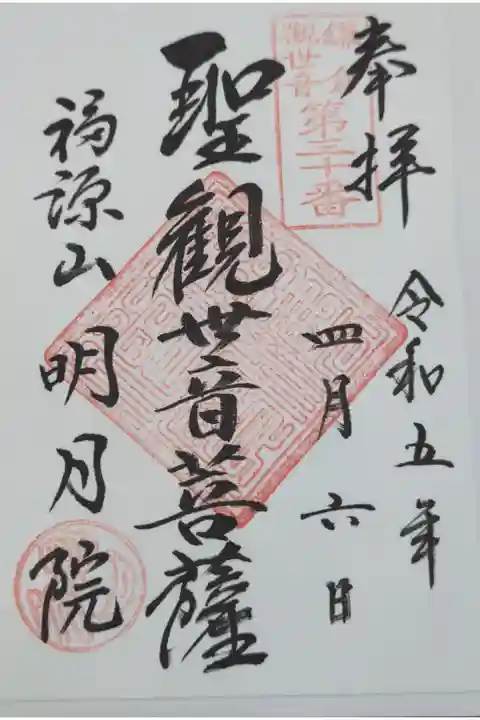 奉拝
令和五年
四月六日
鎌倉
観世音
第三十番
聖観世音菩薩
福源山明月院